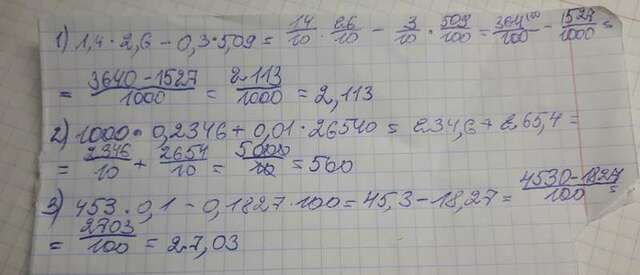 1) 1,4 · 2,6 – 0,3 · 509 = 14/10 · 26/10 – 3/10 · 509/100 = 364(10/100 – 1527/1000 =
= 3640 – 1527/1000 = 2.113/1000 = 2,113
2) 1000 · 0,2346 + 0,01 · 26540 = 234,6 + 265,4 =
= 2346/10 + 2654/10 = 5000/10 = 500
3) 453 · 0,1 – 0,1827 · 100 = 45,3 – 18,27 = 4530 – 1827/100 =
= 2703/100 = 27,03